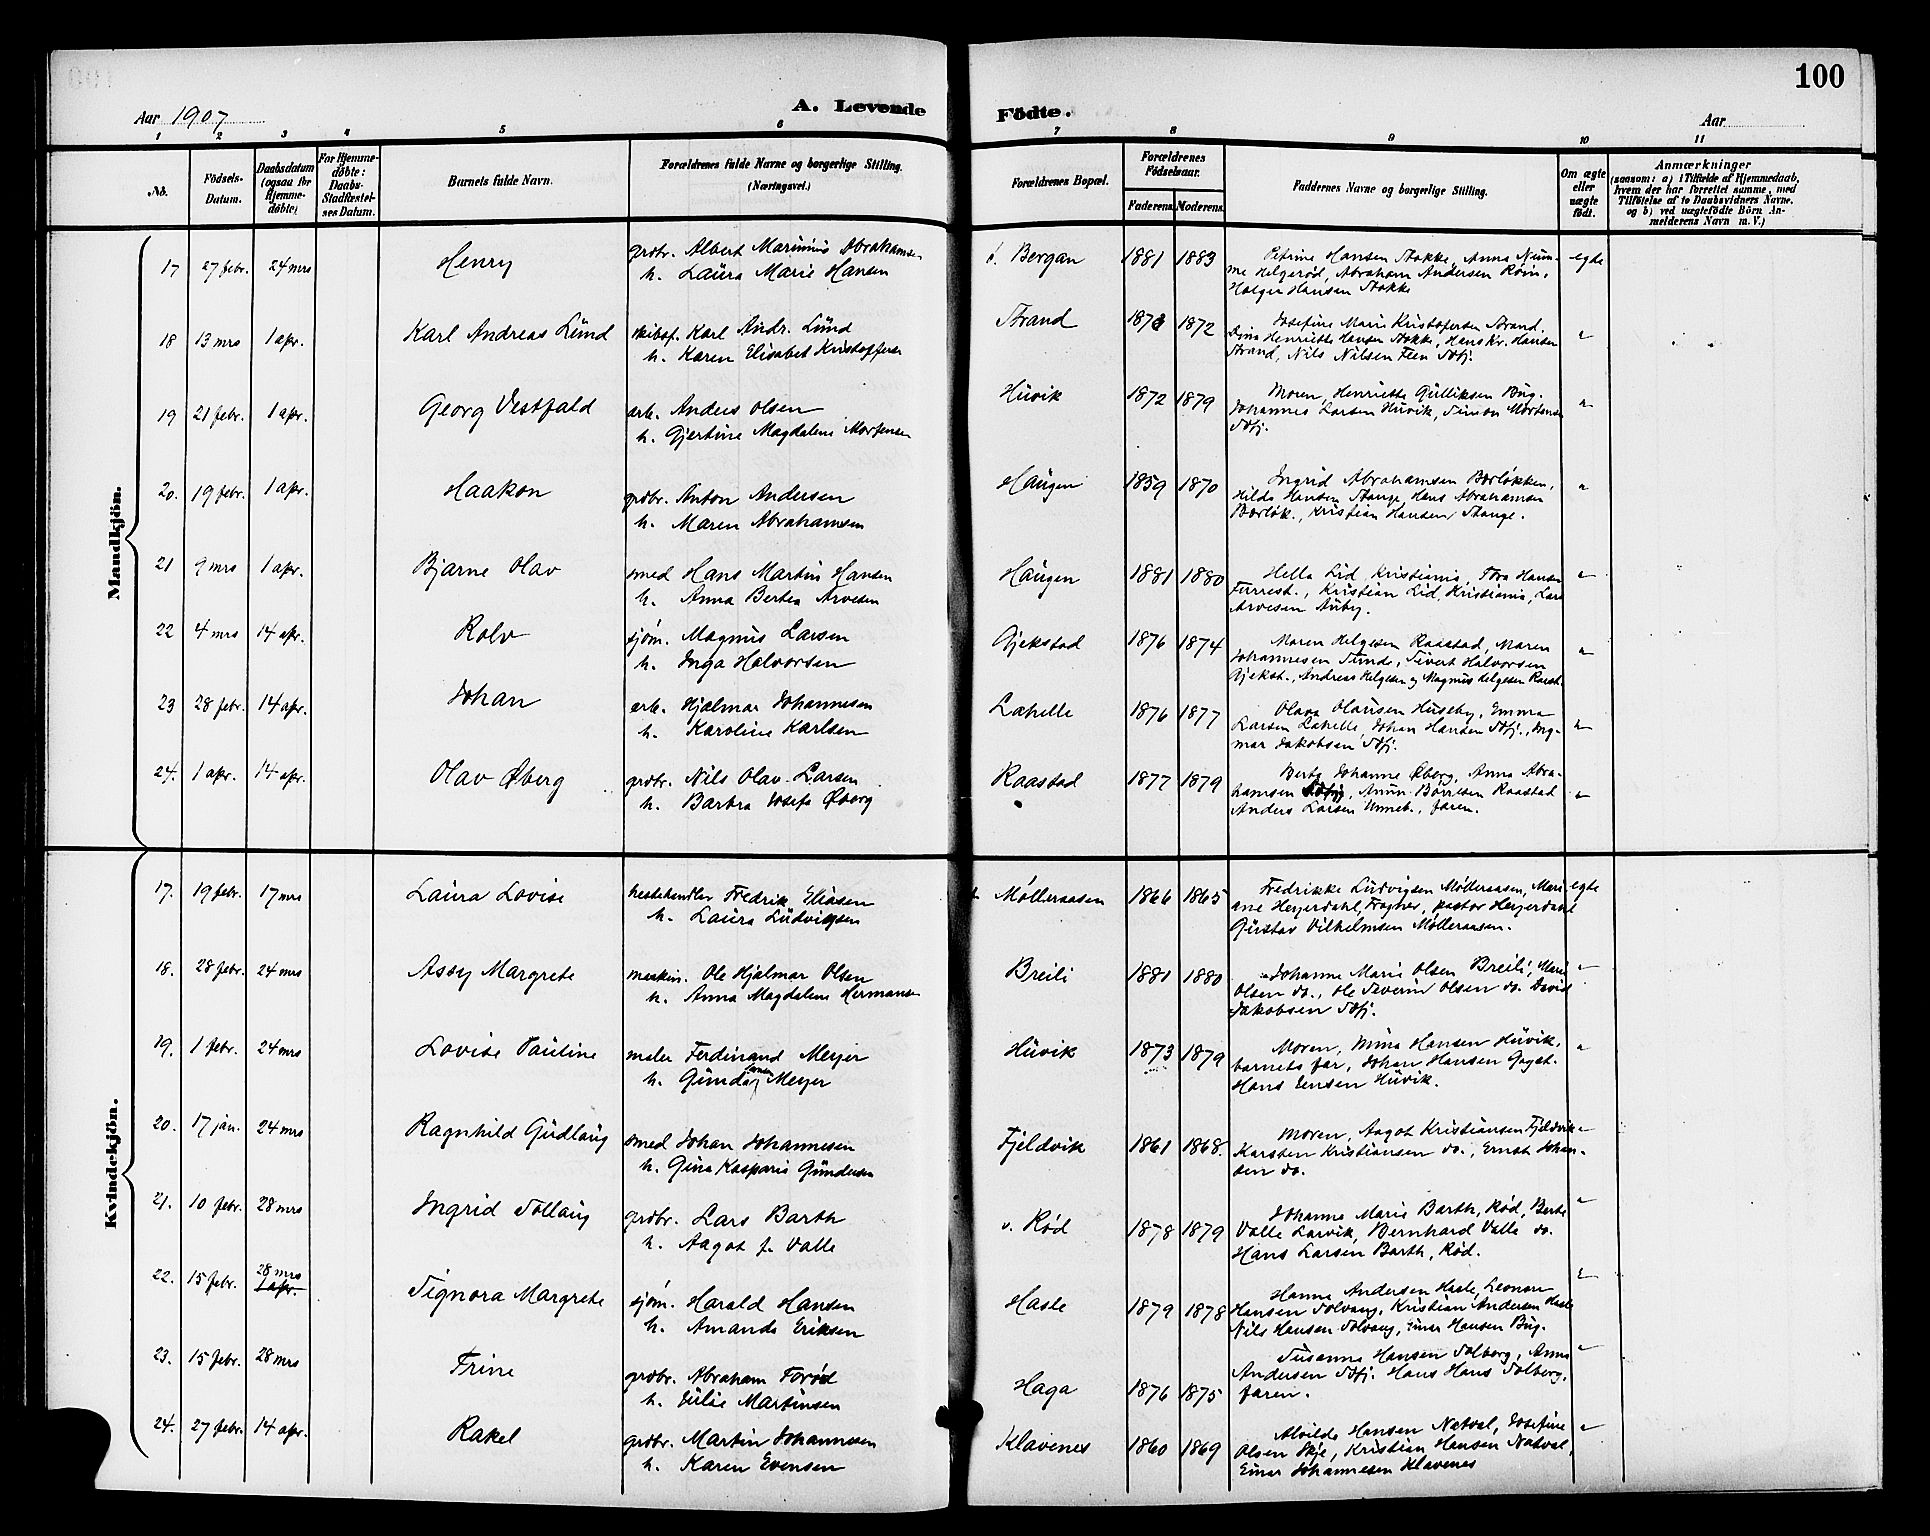 100
Aar 1907
A. Levende Födte.
Aar
1 2 3 4 5 6 7 8 9 10 11
No.
Födsels-Datum.
Daabsdatum (ogsaa for Hjemmedöbte)
For Hjemmedöbte: Daabs-Stadfæstelses Datum.
Barnets fulde Navn.
Forældrenes fulde Navne og borgerlige Stilling. (Næringsvei.)
Forældrenes Bopæl.
Forældrenes Födselsaar.
Faderens. Moderens.
Faddernes Navne og borgerlige Stilling.
Om ægte eller uægte födt.
Anmærkninger
(saasom: a) i Tilfælde af Hjemmedaab,
hvem der har forrettet samme, med
Tilföielse af to Daabsvidners Navne.
og b) ved uægtefödte Börn An-
melderens Navn m. V.)
Mandkjön.
17 27 febr. 24 mrs Henry grdbr. Albert Marinius Abrahamsen
h. Laura Marie Hansen
Bergan 1881 1883 Petrine Hansen Stokke, Anna Num-
me Helgerød, Abraham Andersen Röin,
Holger Hansen Stokke
egte
18 13 mrs 1 apr. Karl Andreas Lund skibsf. Karl Andr. Lund
h. Karen Elisabet Kristoffersen
Strand 1873 1872 Josefine Marie Kristofersen Strand.
Dina Henriette Hansen Stokke, Hans Kr. Hansen
Strand, Nils Nilsen Feen Sdfj.
19 21 febr. 1 apr. Georg Vestfald arb. Anders Olsen
h. Gjertine Magdalene Mortensen
Huvik 1872 1879 Moren, Henriette Gulliksen Bug.
Johannes Larsen Huvik, Simon Mortensen
Sdfj.
20. 19 febr. 1 apr. Haakon grdbr. Anton Andersen
h. Maren Abrahamsen
Haugen 1859 1870 Ingrid Abrahamsen Borløkken,
Hilda Hansen Stange, Hans Abrahamsen
Borløk., Kristian Hansen Stange.
21 9 mrs 1 apr. Bjarne Olav smed Hans Martin Hansen
h. Anna Bertea Arvesen
Haugen 1881 1880 Hella Lid, Kristiania, Tora Hansen
Furrest., Kristian Lid, Kristiania, Lars
Arvesen Auby.
22 4 mrs 14 apr. Rolv sjöm. Magnus Larsen
h. Inga Halvorsen
Gjekstad 1876 1874 Maren Helgesen Raastad, Maren
Johannesen Sunde, Sivert Halvorsen
Gjekst., Andreas Helgesen og Magnus Helgesen Raast.
23 28 febr. 14 apr. Johan arb. Hjalmar Johannesen
h. Karoline Karlsen
Lahelle 1876 1877 Olava Olausen Huseby, Emma
Larsen Lahelle, Johan Hansen Sdfj., Ing-
mar Jakobsen Sdfj.
24. 1 apr. 14 apr. Olav Øberg grdbr. Nils Olav Larsen
h. Barbra Josefa Øberg
Raastad 1877 1879 Berta Johanne Øberg, Anna Abra-
hamsen Sdfj, Anun Børresen Raastad
Anders Larsen Unneb., faren.
Kvindekjön.
17. 19 febr. 17 mrs Laura Lovise hestehandler Fredrik Eliasen
h. Laura Ludvigsen
Mølleraasen 1866 1865 Fredrikke Ludvigsen Mølleraasen, Mari-
ane Heyerdahl, Fragner, pastor Heyerdahl
Gustav Vilhelmsen Mølleraasen.
egte
18. 28 febr. 24 mrs Assy Margrete maskin. Ole Hjalmar Olsen
h. Anna Magdalene Hermansen
Breili 1881 1880 Johanne Marie Olsen Breili, Marie
Olsen do., Ole Severin Olsen do. David
Jakobsen Sdfj.
19. 1 febr. 24 mrs Lovise Pauline maler Ferdinand Meyer
h. Gunda Meyer
Huvik 1873 1879 Moren, Mina Hansen Huvik,
barnets far, Johan Hansen Gogst.
Hans Jensen Huvik.
20. 17 jan. 24 mrs Ragnhild Gudlaug smed Johan Johannesen
h. Gina Kasparia Gundersen
Fjeldvik 1861 1868. Moren, Aagot Kristiansen Fjeldvik
Karsten Kristiansen do., Ernst Johan-
sen do.
21. 10 febr. 28 mrs Ingrid Sollaug grdbr. Lars Barth
h. Aagot f. Valle
v. Rød 1878 1879 Johanna Marie Barth, Rød, Berte
Valle Larvik, Bernhard Valle do.
Hans Larsen Barth, Rød.
22. 15 febr. 28 mrs 1 apr. Signora Margrete sjöm. Harald Hansen
h. Amanda Eriksen
Hasle 1879 1878 Hanna Andersen Hasle, Leonora
Hansen Solvang, Kristian Andersen Hasle
Nils Hansen Solvang, Einar Hansen Bug.
23. 15 febr. 28 mrs Trine grdbr. Abraham Forød
h. Julie Martinsen
Haga 1876 1875 Susanne Hansen Solberg, Anna
Andersen Sdfj. Hans Hans Solberg,
faren.
24. 27 febr. 14 apr. Rakel grdbr. Martin Johannesen
h. Karen Evensen
Klavenes 1860 1869 Alvilde Hansen Natval, Josefine
Olsen Skje, Kristian Hansen Natval,
Einar Johannesen Klavenes